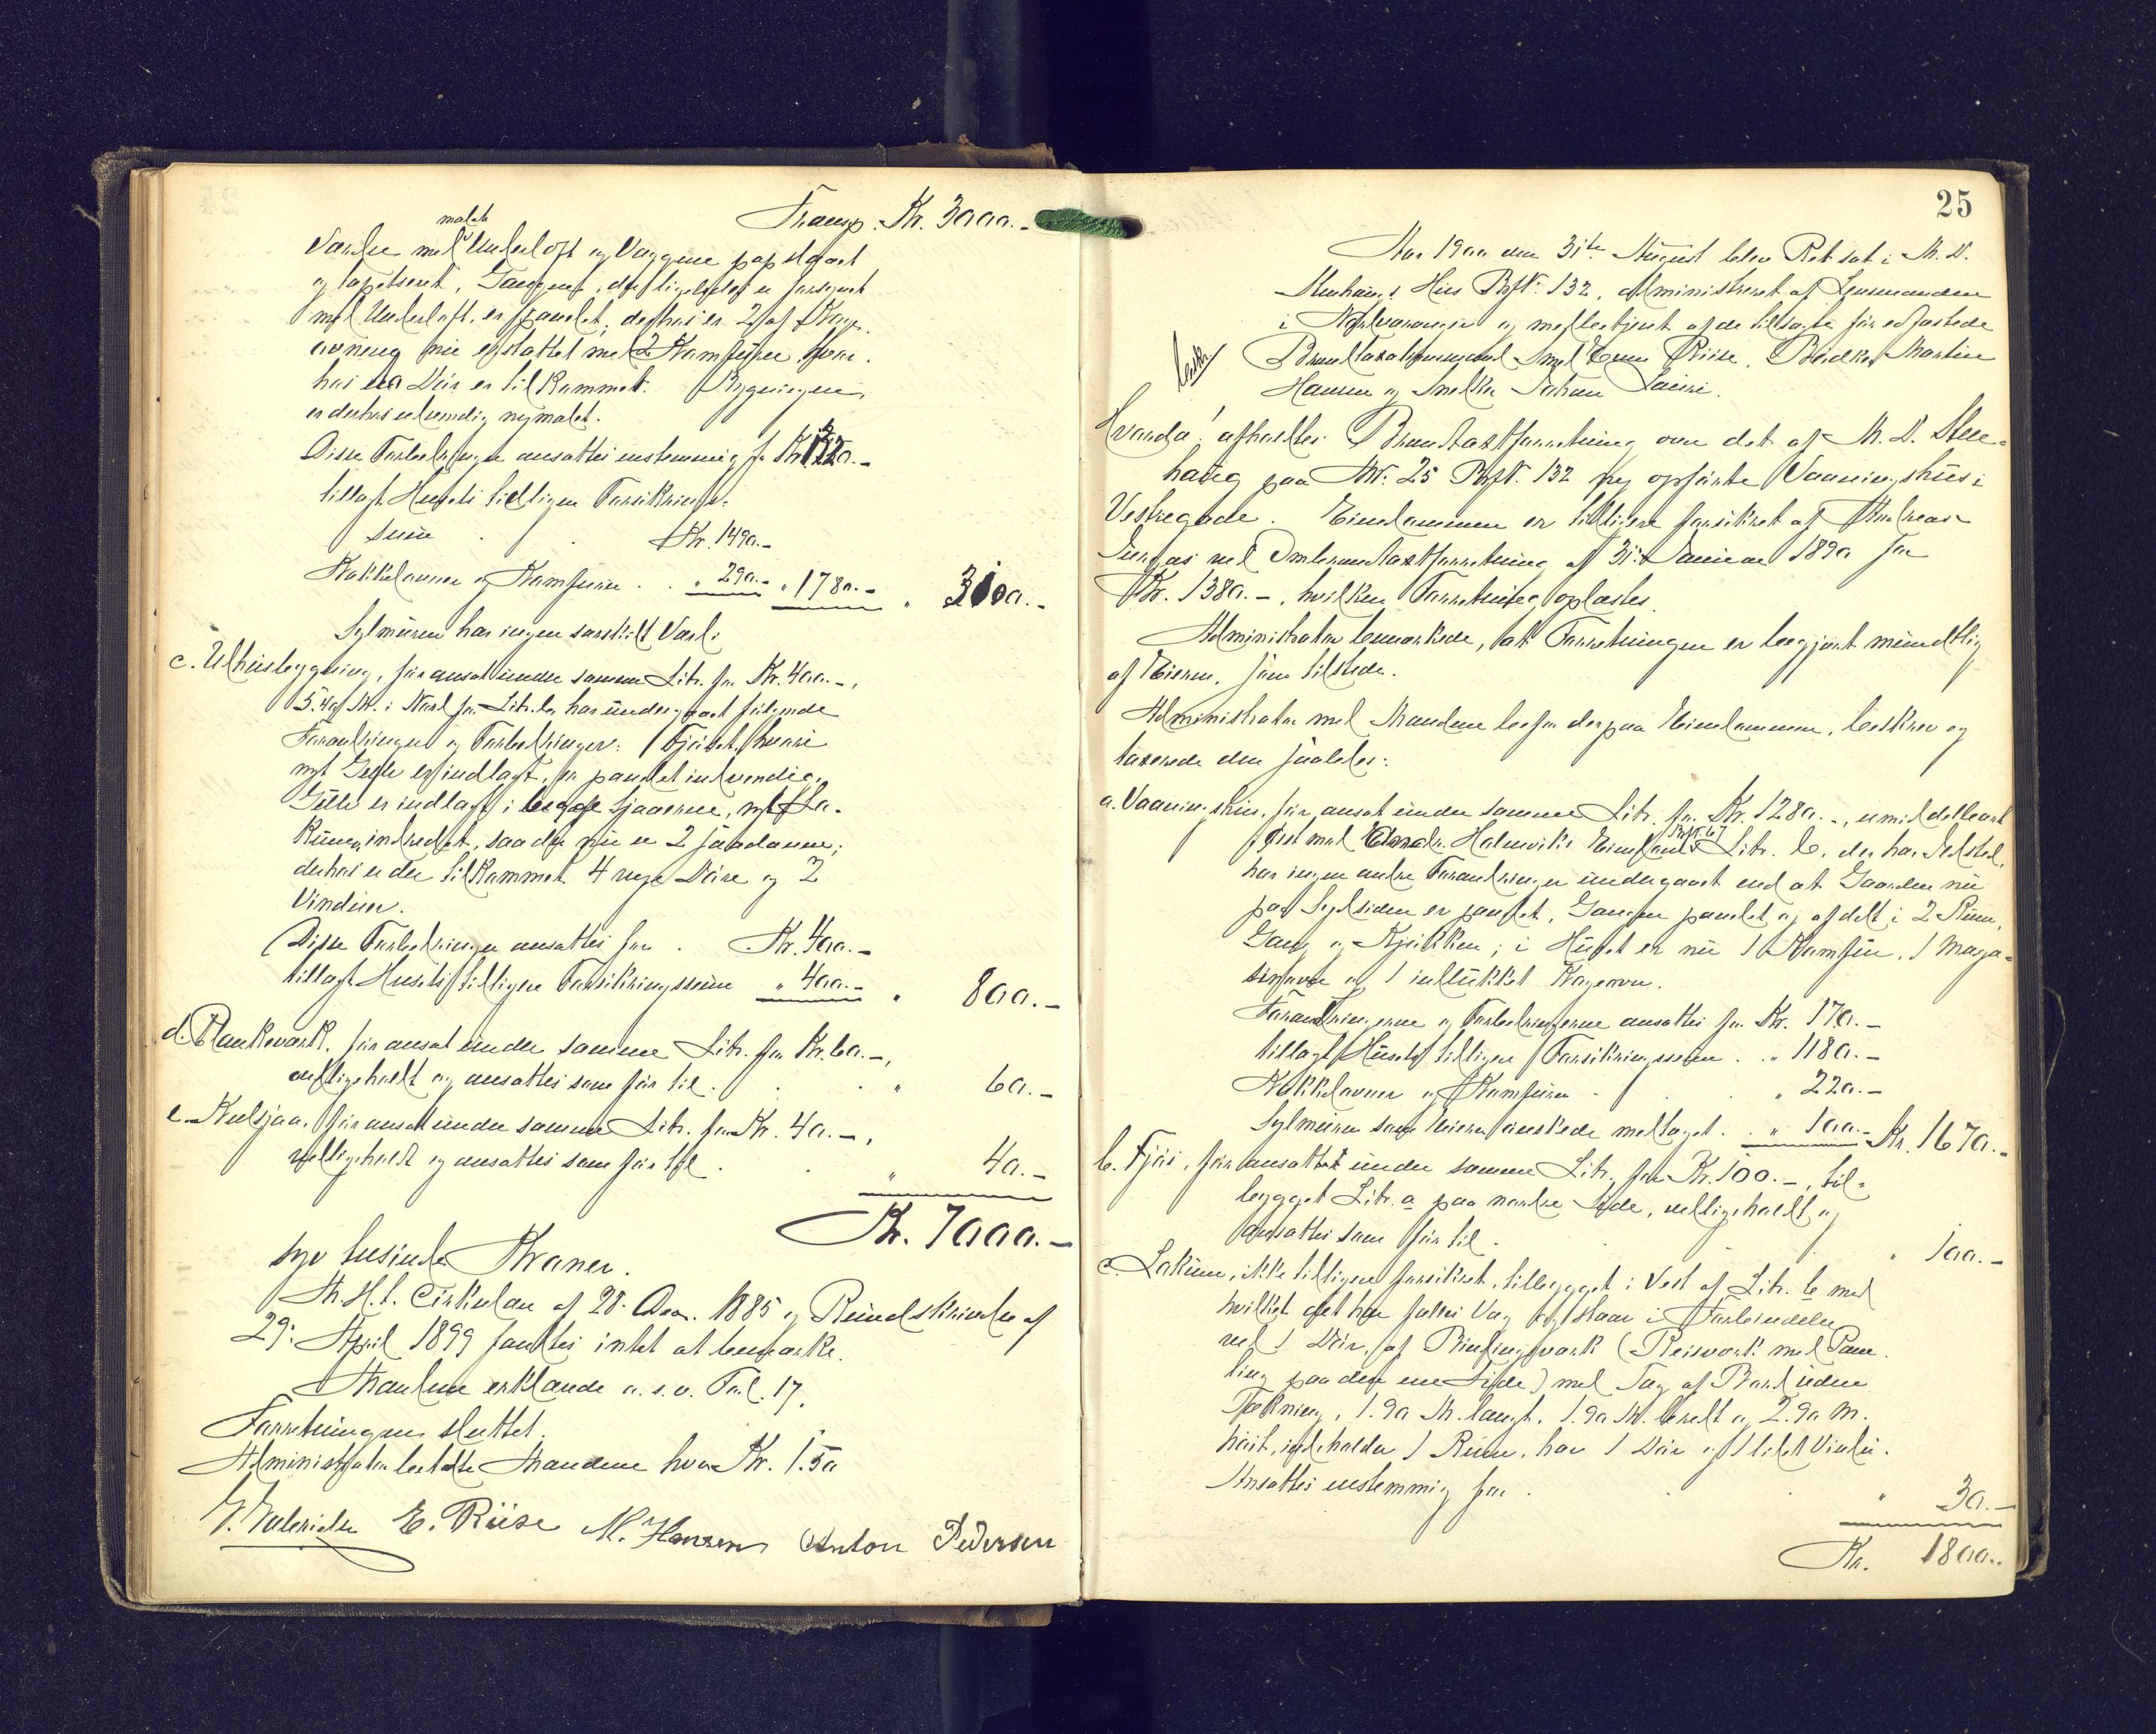 Transp. Kr. 3000.-
malet
Værelse med Underloft og Væggene papslaaet
og tapetseret, Gangene, der ligeledes er forsynet
med Underloft, er panelet; desforuden er 2 af
ovnene nu erstattet med 2 Kamfiner hvor-
hos en Dør er tilkommet. Bygningen
er derhos udvendig nymalet.
Disse Forbedringer ansattes enstemmig for Kr. 1320.-
tillagt Husets tidligere Forsikrings-
sum Kr. 1490.-
Kakkelovne og Kamfiner . . " 290.- " 1780.- " 3100.-
Sylmuren har ingen særskilt Værdi
c. Udhusbygning, før ansat under samme Litr. for Kr. 400.-,
5.40 M. i Nord for Litr. b. har undergaaet følgende
Forandringer og Forbedringer: Fjøset, hvori
nyt Gulv er indlagt, er panelet indvendig,
Gulv er indlagt i begge Sjaaerne, nyt La-
kum indredet, saa der nu er 2 saadanne;
derhos er der tilkommet 4 nye Døre og 2
Vinduer.
Disse Forbedringer ansattes for . Kr. 400.-
tillagt Husets tidligere Forsikringssum " 400.- " 800.-
d. Plankeværk, før ansat under samme Litr. for Kr. 60.-,
vedligeholdt og ansattes som før til . . " 60.-
e. Kulsjaa, før ansat under samme Litr. for Kr. 40.-,
vedligeholdt og ansattes som før til . " 40.-
Kr. 7000.-
syv tusinde Kroner.
Th. H. t. Cirkulær af 28. Dec. 1885 og Rundskrivelse af
29. April 1899 fandtes intet at bemærke.
Mændene erklærede o. s. v. Fol. 17.
Forretningen sluttet.
Administrator betalte Mændene hver Kr. 1.50
G. Gabrielsen E. Riise M. Hansen Anton Pedersen
25
Aar 1900 den 31te August blev Ret sat i M. D.
Stenhaugs Hus Brft. 132, administreret af Lensmanden
i Nordvaranger og meddbetjent af de tilsagte før edfæstede
Brandtaxationsmænd Smed Even Riise, Bødker Martin
Hansen og Snekker Johan Lauri.
besk.
Hvorda! afholdtes Brandtaxtforretning over det af M. D. Sten-
haug paa M. No. 25 Brft. 132 ny opførte Vaaningshus i
Vestregade. Eiendommen er tidligere forsikret af Andreas
ved Ombrandtaxtforretning af 31. Januar 1890 for
Kr. 1380.-, hvilken Forretning oplæstes.
Administrator bemærkede, at Forretningen er begjært mundtlig
af Eieren, som tilstede.
Administrator med Mændene besaa derpaa Eiendommen, beskrev og
taxerede den saaledes:
a. Vaaningshus, før ansat under samme Litr. for Kr. 1280.-, umiddelbart
i Øst med Holmviks Eiendoms Brft. 67 Litr. b, der har Ildsted,
har ingen andre Forandringer undergaaet end at Gaarden nu
paa Sydsiden er panelet, Gangen panelet og afdelt i 2 Rum,
Gang og Kjøkken; i Huset er nu 1 Kamfin, 1 Maga-
sinovn og 1 indlukket Kogeovn.
Forandringerne og Forbedringerne ansattes for Kr. 170.-
tillagt Husets tidligere Forsikringssum . . " 1180.-
Kakkelovner og Kamfiner . . " 220.-
Sylmuren som Eieren ønskede medtaget . . " 100.- Kr. 1670.-
b. Fjøs, før ansattet under samme Litr. for Kr. 100.-, til-
bygget Litr. a paa nordre Side, vedligeholdt og
ansattes som før til . . . " 100.-
c. Lakum, ikke tidligere forsikret, tilbygget i Vest af Litr. b med
hvilket det har fælles Væg og staar i Forbindelse
ved 1 Dør, af Bindingsværk (Reisværk med Pane-
ling paa den ene Side) med Tag af Bord uden
Tækning, 1.90 M. langt, 1.90 M. bredt og 2.90 M.
høit, indeholder 1 Rum, har 1 Dør og 1 lidet Vindu.
Ansattes enstemmig for . . " 30.-
Kr. 1800.-